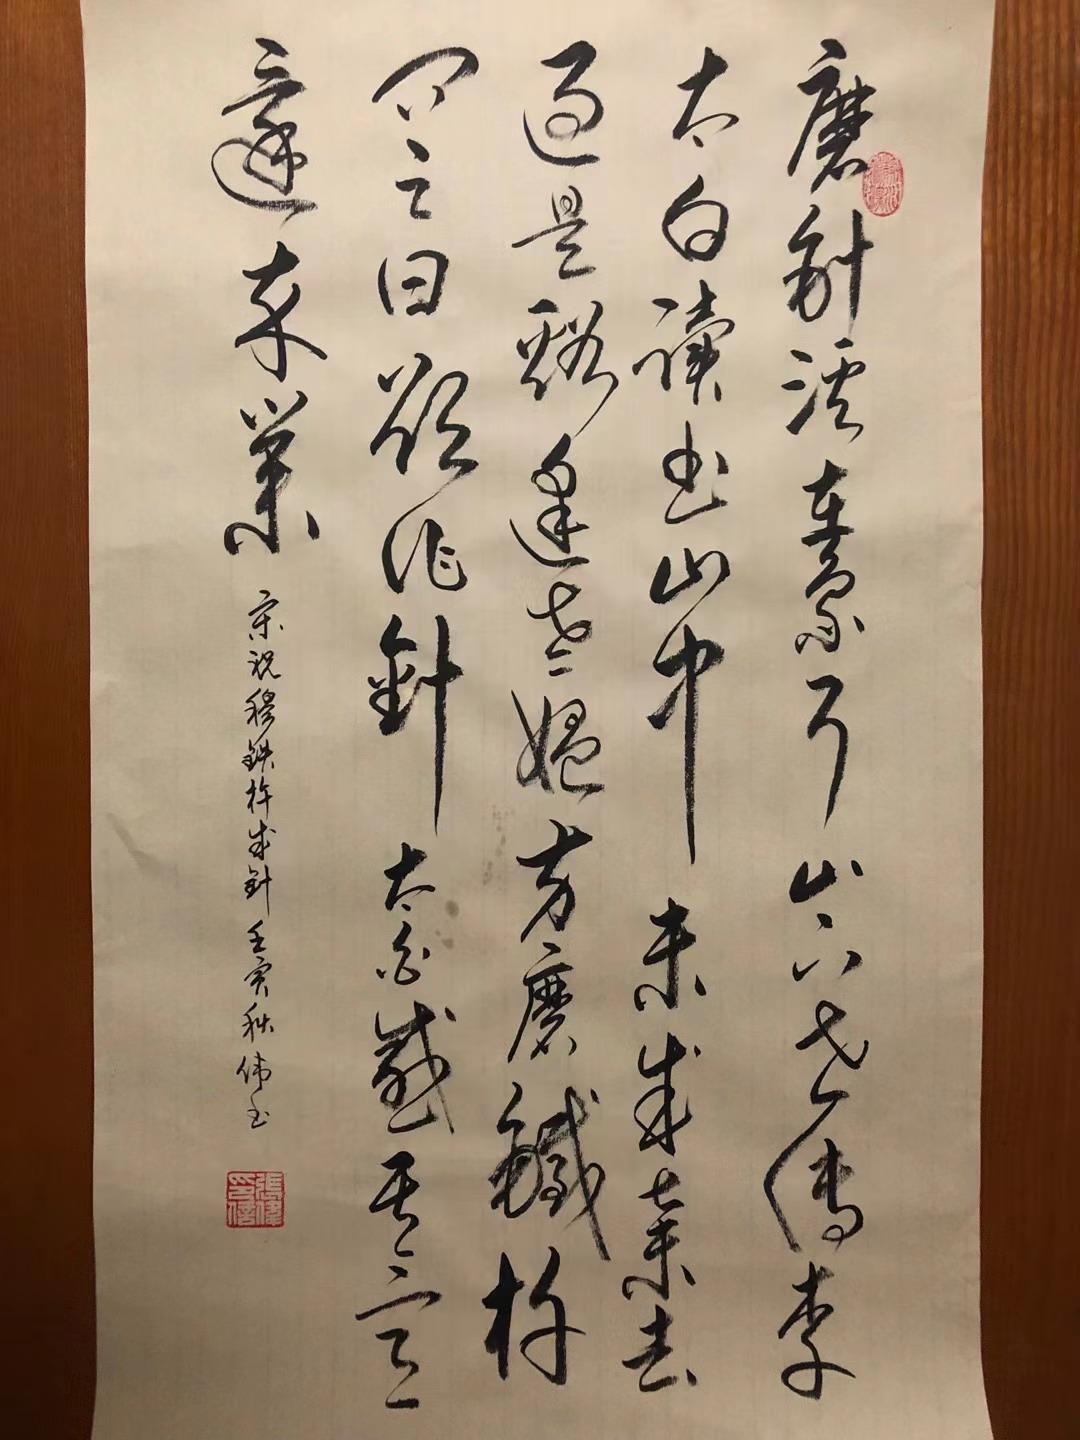 磨針溪在象耳山下世傳李
太白读书山中未成棄去
过是谿逢老媪方磨鐵杵
问之曰欲作針太白感其言
遂卒業
宋祝穆鉄杵成針壬寅秋伟书
張偉印信